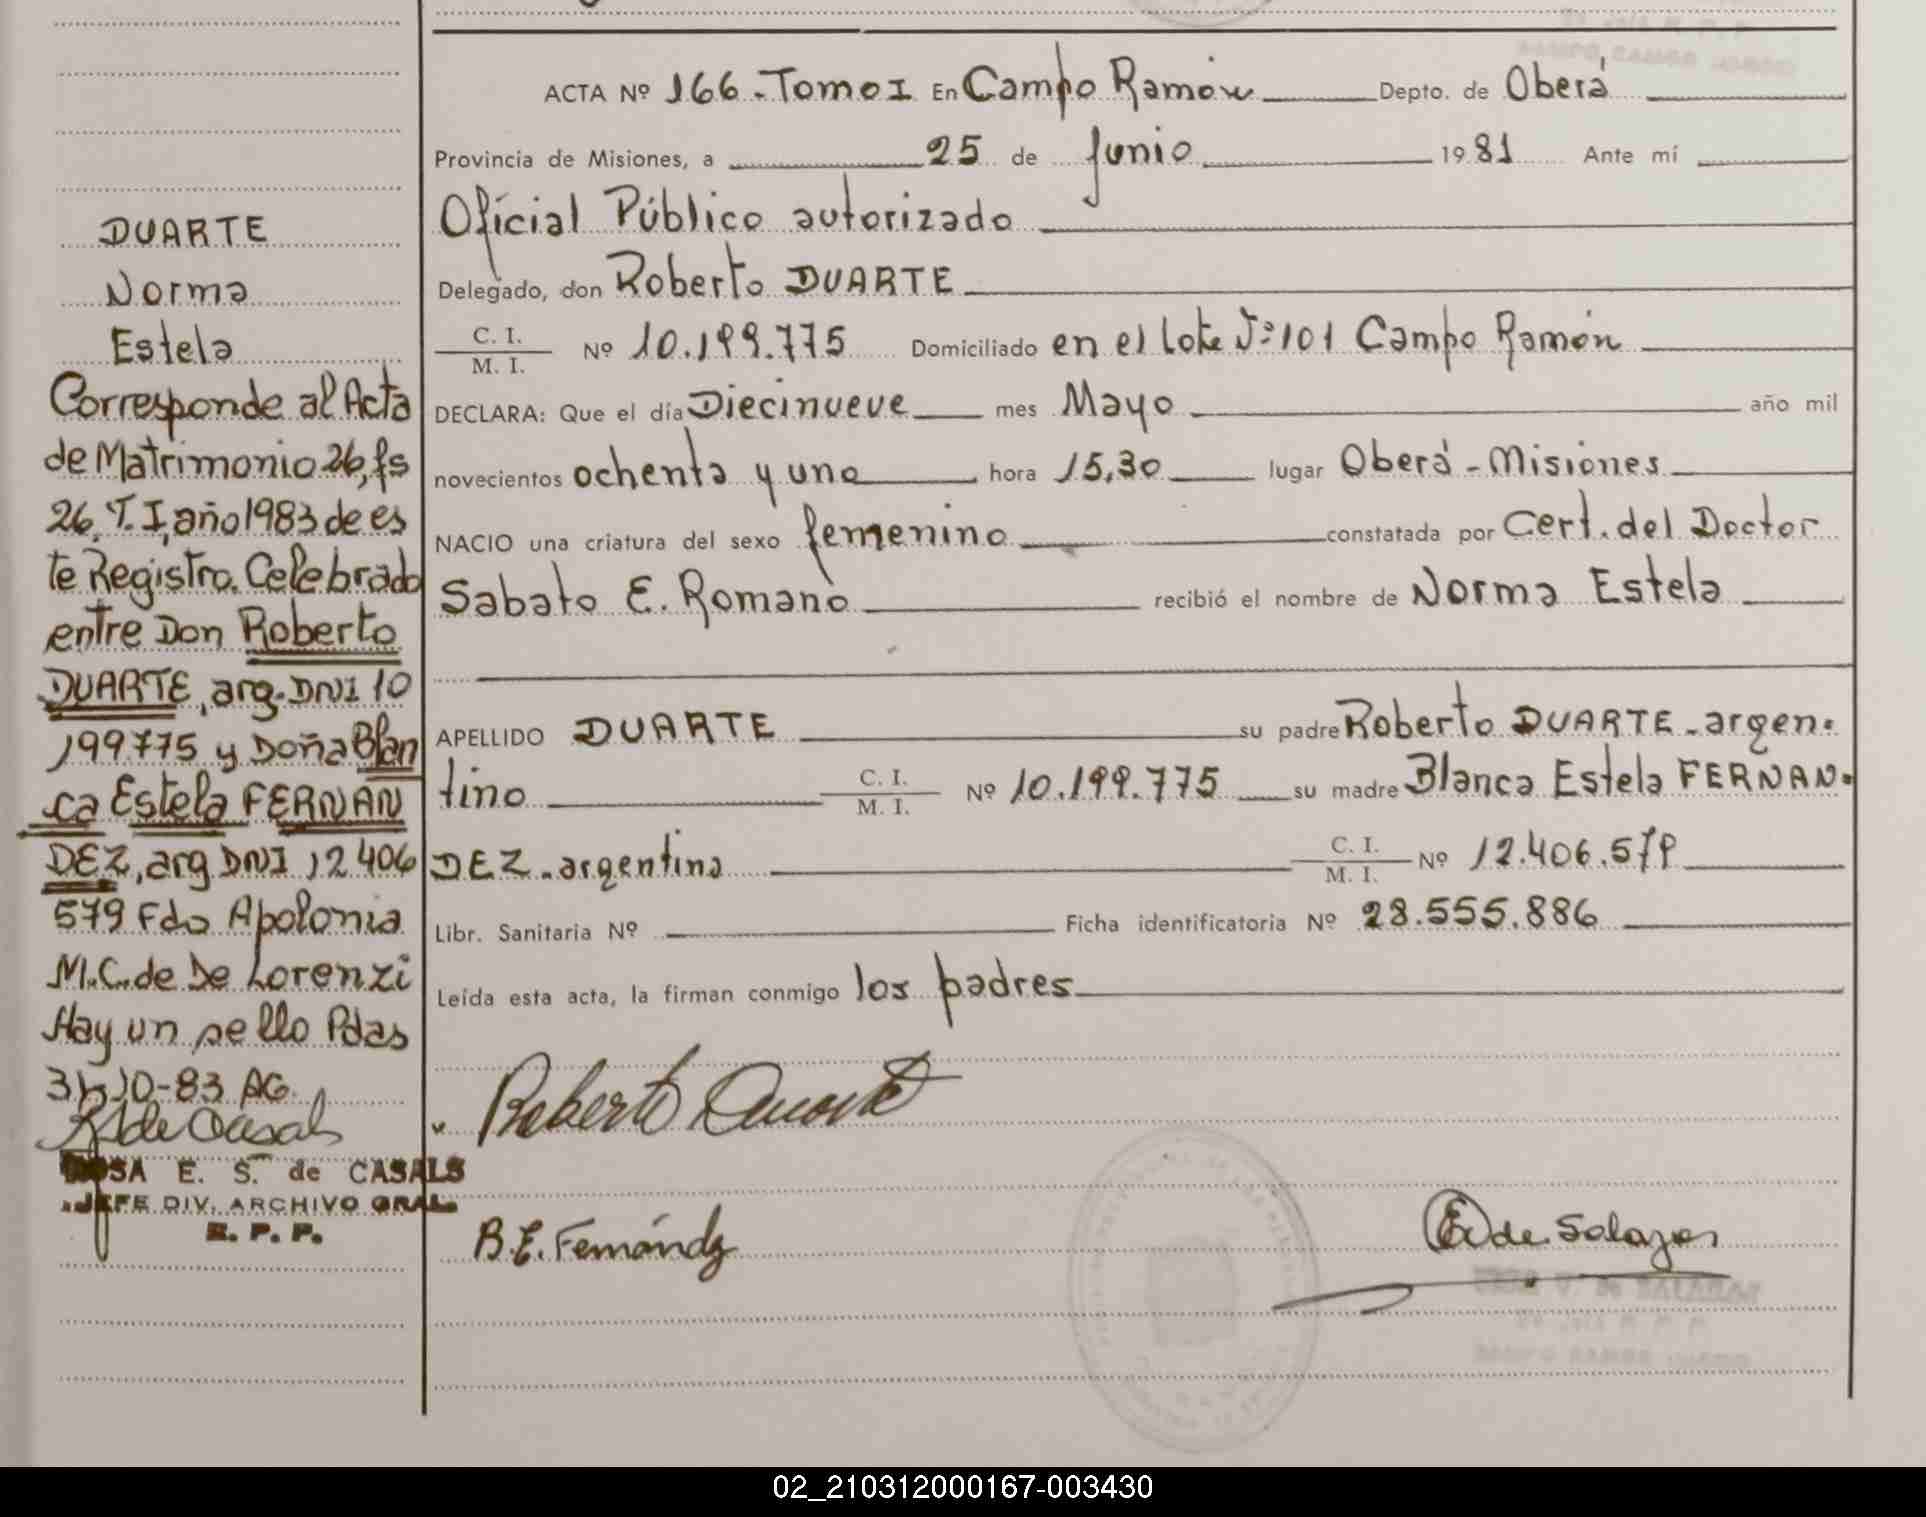 DUARTE
Norma
Estela
Corresponde al Acta
de Matrimonio 26, fs
26, T. I, año 1983 de es
te Registro. Celebrado
entre Don Roberto
DUARTE, arg. DNI 10
199775 y Doña Blan
ca Estela FERNAN
DEZ, arg DNI 12 406
579 Fdo Apolonia
M.C. de De Lorenzi
Hay un sello Pdas
31-10-83 AG.
de Casals
ROSA E. S. de CASALS
JEFE DIV. ARCHIVO GRAL.
R. P. P.
ACTA Nº 166 - Tomo I En Campo Ramón Depto. de Oberá
Provincia de Misiones, a 25 de Junio 19 81 Ante mí
Oficial Público autorizado
Delegado, don Roberto DUARTE
C. I.
M. I. Nº 10.199.775 Domiciliado en el lote Nº 101 Campo Ramón
DECLARA: Que el día Diecinueve mes Mayo año mil
novecientos ochenta y uno hora 15,30 lugar Oberá - Misiones
NACIO una criatura del sexo femenino constatada por Cert. del Doctor
Sabato E. Romano recibió el nombre de Norma Estela
APELLIDO DUARTE su padre Roberto DUARTE - argen-
tino C. I.
M. I. Nº 10.199.775 su madre Blanca Estela FERNAN-
DEZ - argentina C. I.
M. I. Nº 12.406.579
Libr. Sanitaria Nº Ficha identificatoria Nº 28.555.886
Leída esta acta, la firman conmigo los padres
Roberto Duarte
B.E. Fernández
de Salazar
02_210312000167-003430